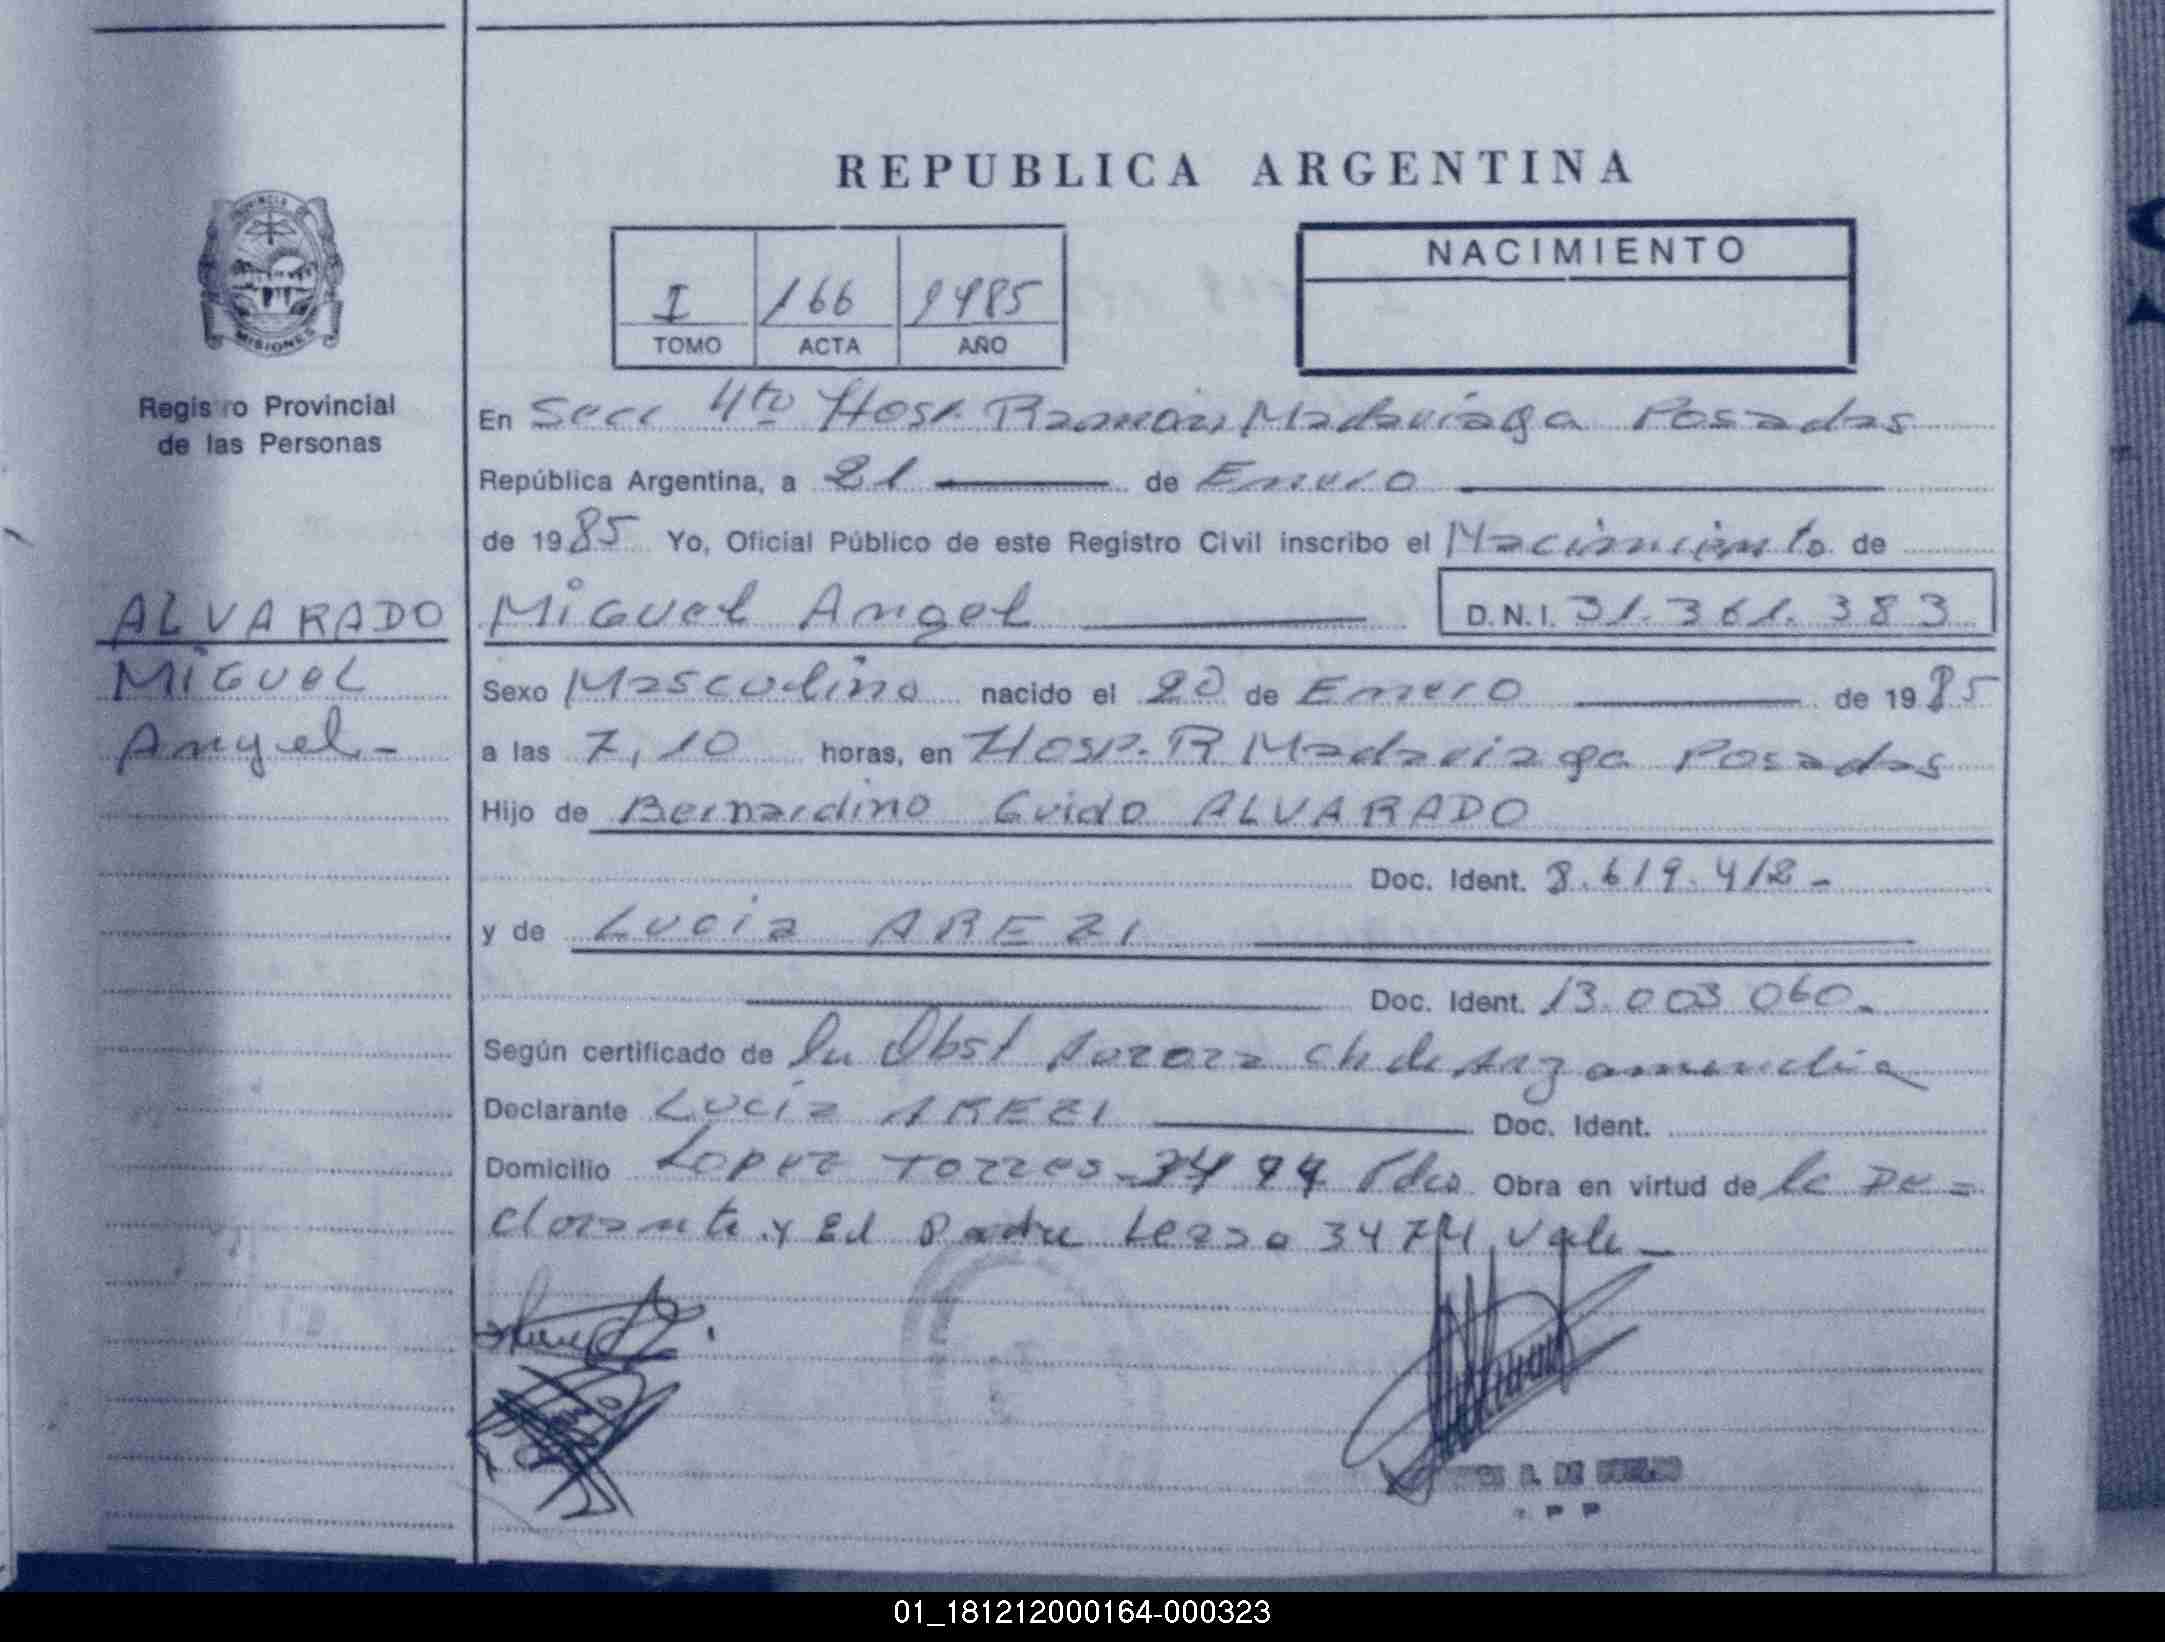 REPUBLICA ARGENTINA
PROVINCIA DE
MISIONES
Registro Provincial
de las Personas
I 166 1985
TOMO ACTA AÑO
NACIMIENTO
En Secc 4to Hosp. Ramon Madariaga Posadas
República Argentina, a 21 de Enero
de 1985 Yo, Oficial Público de este Registro Civil inscribo el Nacimiento de
ALVARADO
Miguel
Angel-
Miguel Angel D.N.I. 31.361.383
Sexo Masculino nacido el 20 de Enero de 1985
a las 7,10 horas, en Hosp. R Madariaga Posadas
Hijo de Bernardino Guido ALVARADO
Doc. Ident. 8.619.412-
y de Lucia AREZI
Doc. Ident. 13.003.060-
Según certificado de la Obst Aurora Ch de Arzamendia
Declarante Lucia AREZI Doc. Ident.
Domicilio Lopez Torres Pdas Obra en virtud de la De=
clarante y El Padre 3474 Vale-
01_181212000164-000323